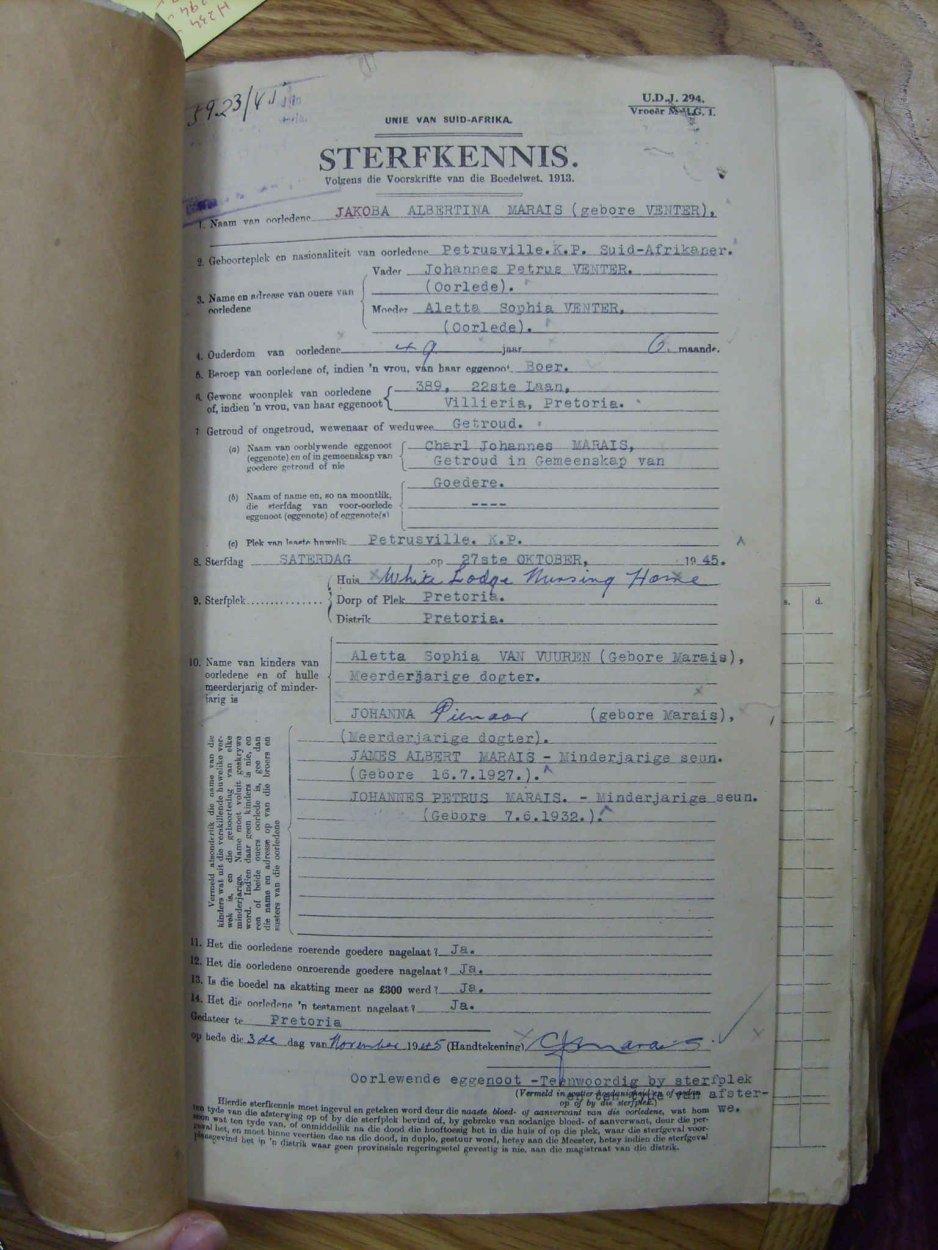 H234
294
5923/45
U.D.J. 294.
Vroeër M.L.G. 1.
UNIE VAN SUID-AFRIKA.
STERFKENNIS.
Volgens die Voorskrifte van die Boedelwet. 1913.
1. Naam van oorledene JAKOBA ALBERTINA MARAIS (gebore VENTER),
2. Geboorteplek en nasionaliteit van oorledene Petrusville.K.P. Suid-Afrikaner.
3. Name en adresse van ouers van oorledene
Vader Johannes Petrus VENTER.
(Oorlede).
Moeder Aletta Sophia VENTER,
(Oorlede).
4. Ouderdom van oorledene 49 jaar 6. maande.
5. Beroep van oorledene of, indien 'n vrou, van haar eggenoot Boer.
6. Gewone woonplek van oorledene 389, 22ste Laan,
of, indien 'n vrou, van haar eggenoot Villieria, Pretoria.
7 Getroud of ongetroud, wewenaar of weduwee Getroud.
(a) Naam van oorblywende eggenoot Charl Johannes MARAIS,
(eggenote) en of in gemeenskap van Getroud in Gemeenskap van
goedere getroud of nie
Goedere.
(b) Naam of name en, so na moontlik,
die sterfdag van voor-oorlede ----
eggenoot (eggenote) of eggenote(s)
(c) Plek van laaste huwelik Petrusville. K.P.
8. Sterfdag SATERDAG op 27ste OKTOBER, 1945.
9. Sterfplek
Huis White Lodge Nursing Home
Dorp of Plek Pretoria.
Distrik Pretoria.
10. Name van kinders van
oorledene en of hulle
meerderjarig of minder-
jarig is
Aletta Sophia VAN VUUREN (Gebore Marais),
Meerderjarige dogter.
JOHANNA Pienaar (gebore Marais),
(Meerderjarige dogter).
JAMES ALBERT MARAIS - Minderjarige seun.
(Gebore 16.7.1927.).
JOHANNES PETRUS MARAIS. - Minderjarige seun.
(Gebore 7.6.1932.).
Vermeld afsonderlik die name van die
kinders wat uit die verskillende huwelike ver-
wek is, en die geboortedag van elke
minderjarige. Name moet voluit geskrywe
word. Indien daar geen kinders is nie, en
een of beide ouers oorlede is, gee dan
die name en adresse op van die broers en
susters van die oorledene
s. d.
11. Het die oorledene roerende goedere nagelaat? Ja.
12. Het die oorledene onroerende goedere nagelaat? Ja.
13. Is die boedel na skatting meer as £300 werd? Ja.
14. Het die oorledene 'n testament nagelaat? Ja.
Gedateer te Pretoria
op hede die 3de dag van November 1945 (Handtekening) CJ Marais
Oorlewende eggenoot -Teenwoordig by sterfplek
(Vermeld in watter hoedanigheid en of
op of by die sterfplek.)
van afster-
we.
Hierdie sterfkennis moet ingevul en geteken word deur die naaste bloed- of aanverwant van die oorledene, wat hom
ten tyde van die afsterwing op of by die sterfplek bevind of, by gebreke van sodanige bloed- of aanverwant, deur die per-
soon wat ten tyde van, of onmiddellik na die dood die hooftoesig het in die huis of op die plek, waar die sterfgeval voor-
geval het, en moet binne veertien dae na die dood, in duplo, gestuur word, hetsy aan die Meester, hetsy indien die sterfgeval
plaasgevind het in 'n distrik waar geen provinsiale regeringsetel gevestig is nie, aan die magistraat van die distrik.